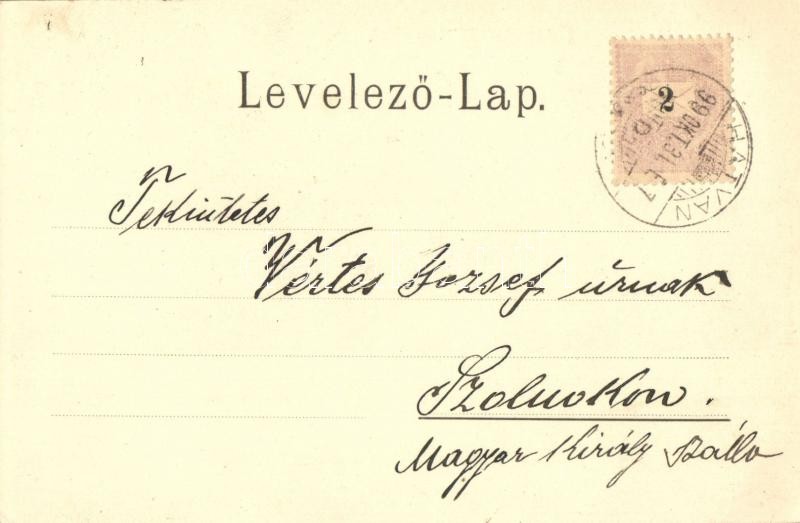 Levelező-Lap.
2
HATVAN
99 OKT. 31.
Tekintetes
Vértes Jozsef úrnak
Szolnokon.
Magyar Király Szálló